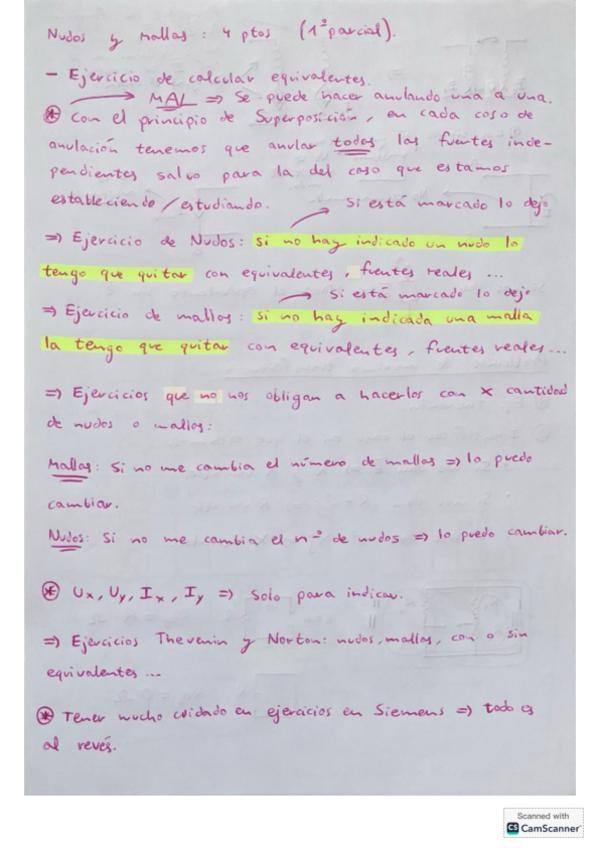 Nudos y mallas : 4 ptos (1º parcial).
- Ejercicio de calcular equivalentes.
MAL => Se puede hacer anulando una a una.
* Con el principio de Superposición, en cada caso de
anulación tenemos que anular todas las fuentes inde-
pendientes salvo para la del caso que estamos
estableciendo / estudiando.
Si está marcado lo dejo
=> Ejercicio de Nudos: Si no hay indicado un nudo lo
tengo que quitar con equivalentes, fuentes reales ...
Si está marcado lo dejo
=> Ejercicio de mallas: si no hay indicada una malla
la tengo que quitar con equivalentes, fuentes reales...
=> Ejercicios que no nos obligan a hacerlos con X cantidad
de nudos o mallas:
Mallas: Si no me cambia el número de mallas => lo puedo
cambiar.
Nudos: Si no me cambia el nº de nudos => lo puedo cambiar.
* Ux, Uy, Ix, Iy => Solo para indicar.
=> Ejercicios Thevenin y Norton: nudos, mallas, con o sin
equivalentes ...
* Tener mucho cuidado en ejercicios en Siemens => todo es
al revés.
Scanned with
CS CamScanner